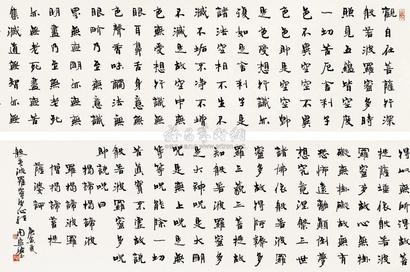 觀自在菩薩行深
般若波羅蜜多時
照見五蘊皆空度
一切苦厄舍利子
色不異空空不異
色色即是空空即
是色受想行識亦
復如是舍利子是
諸法空相不生不
滅不垢不淨不增
不減是故空中無
色無受想行識無
眼耳鼻舌身意無
色聲香味觸法無
眼界乃至無意識
界無無明亦無無
明盡乃至無老死
亦無老死盡無苦
集滅道無智亦無
得以無所得故菩
提薩埵依般若波
羅蜜多故心無罣
礙無罣礙故無有
恐怖遠離顛倒夢
想究竟涅槃三世
諸佛依般若波羅
蜜多故得阿耨多
羅三藐三菩提故
知般若波羅蜜多
是大神咒是大明
咒是無上咒是無
等等咒能除一切
苦真實不虛故說
般若波羅蜜多咒
即說咒曰
揭諦揭諦波
羅揭諦波羅
僧揭諦菩提
薩婆訶
般若波羅蜜多心經